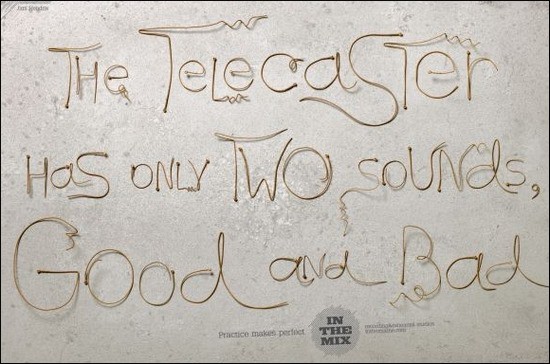 The Telecaster
has only two sounds,
Good and Bad
Practice makes perfect
IN
THE
MIX